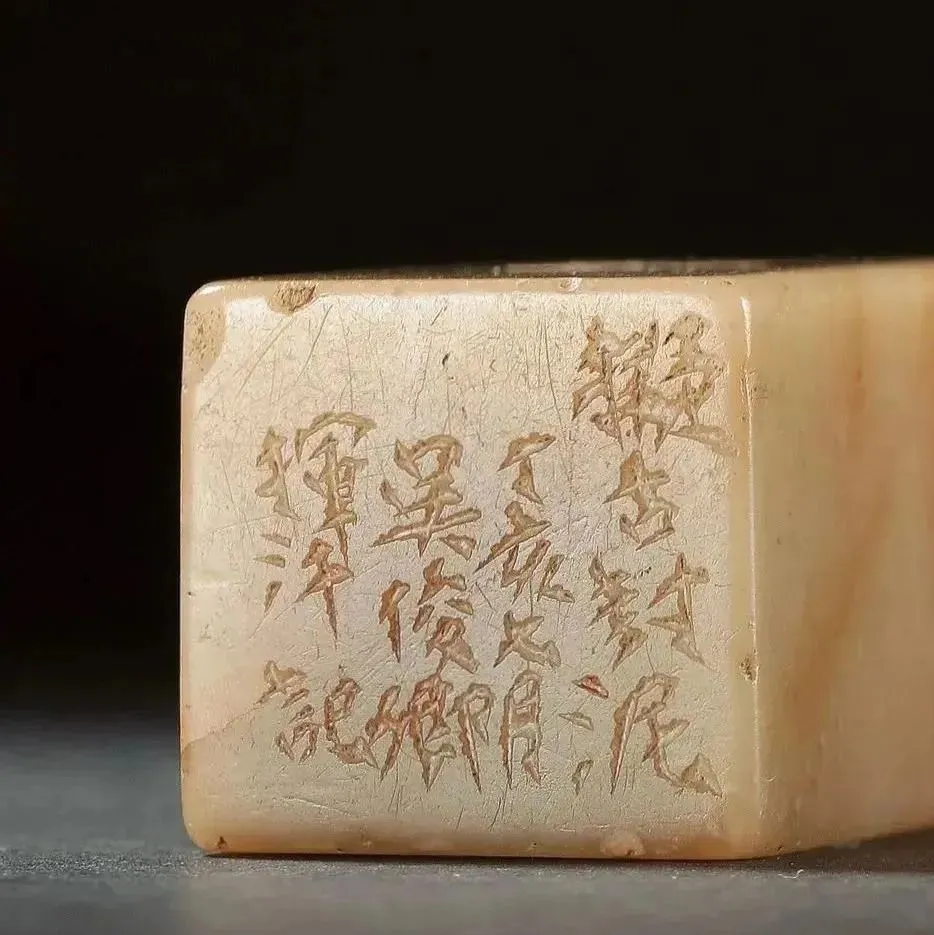 擬古封泥
丁亥七月
吳俊卿
揮汗記